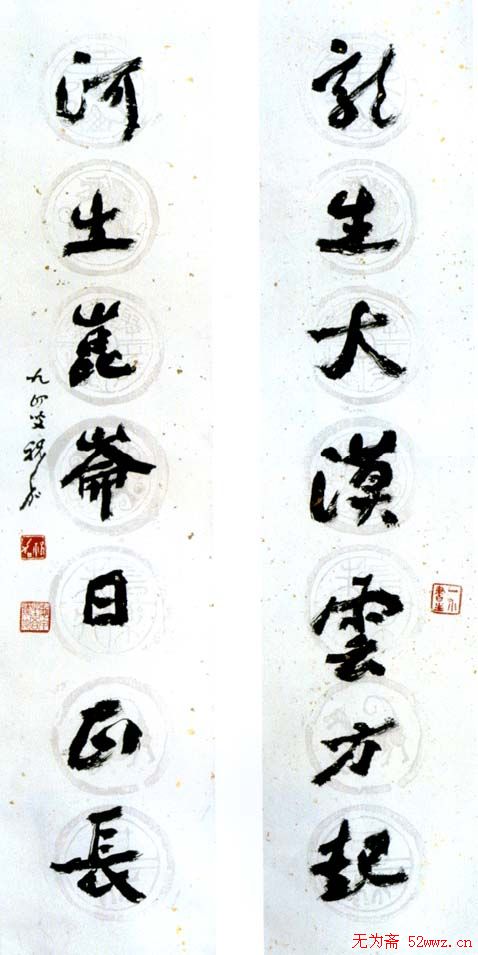 龍生大漠雲方起
河出崑崙日正長
九四
无为斋 52wwz.cn